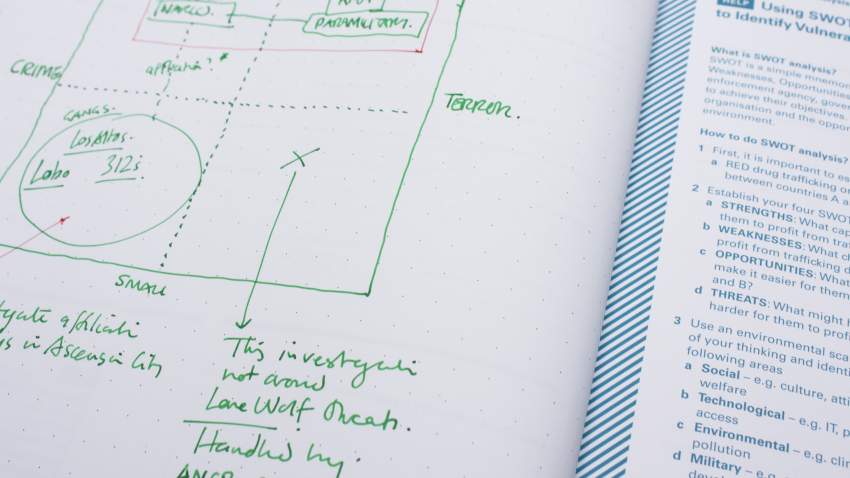 NARCO.
PARAMILITARY.
CRIME
affiliation?*
TERROR.
GANGS.
Los Altos.
Lobo 312s.
X
SMALL
affiliati
is in Ascensia City
This investigati
not around
Lone Wolf threats.
Handled by:
HELP Using SWOT
to Identify Vulnera
What is SWOT analysis?
SWOT is a simple mnemon
Weaknesses, Opportunities
enforcement agency, gover
to achieve their objectives.
organisation and the oppor
environment.
How to do SWOT analysis?
1 First, it is important to es
a RED drug trafficking or
between countries A a
2 Establish your four SWO
a STRENGTHS: What cap
them to profit from traf
b WEAKNESSES: What cl
profit from trafficking d
c OPPORTUNITIES: What
make it easier for them
and B?
d THREATS: What might h
harder for them to profi
3 Use an environmental sca
of your thinking and identi
following areas
a Social – e.g. culture, atti
welfare
b Technological – e.g. IT, p
access
c Environmental – e.g. clim
pollution
d Military – e.g. de